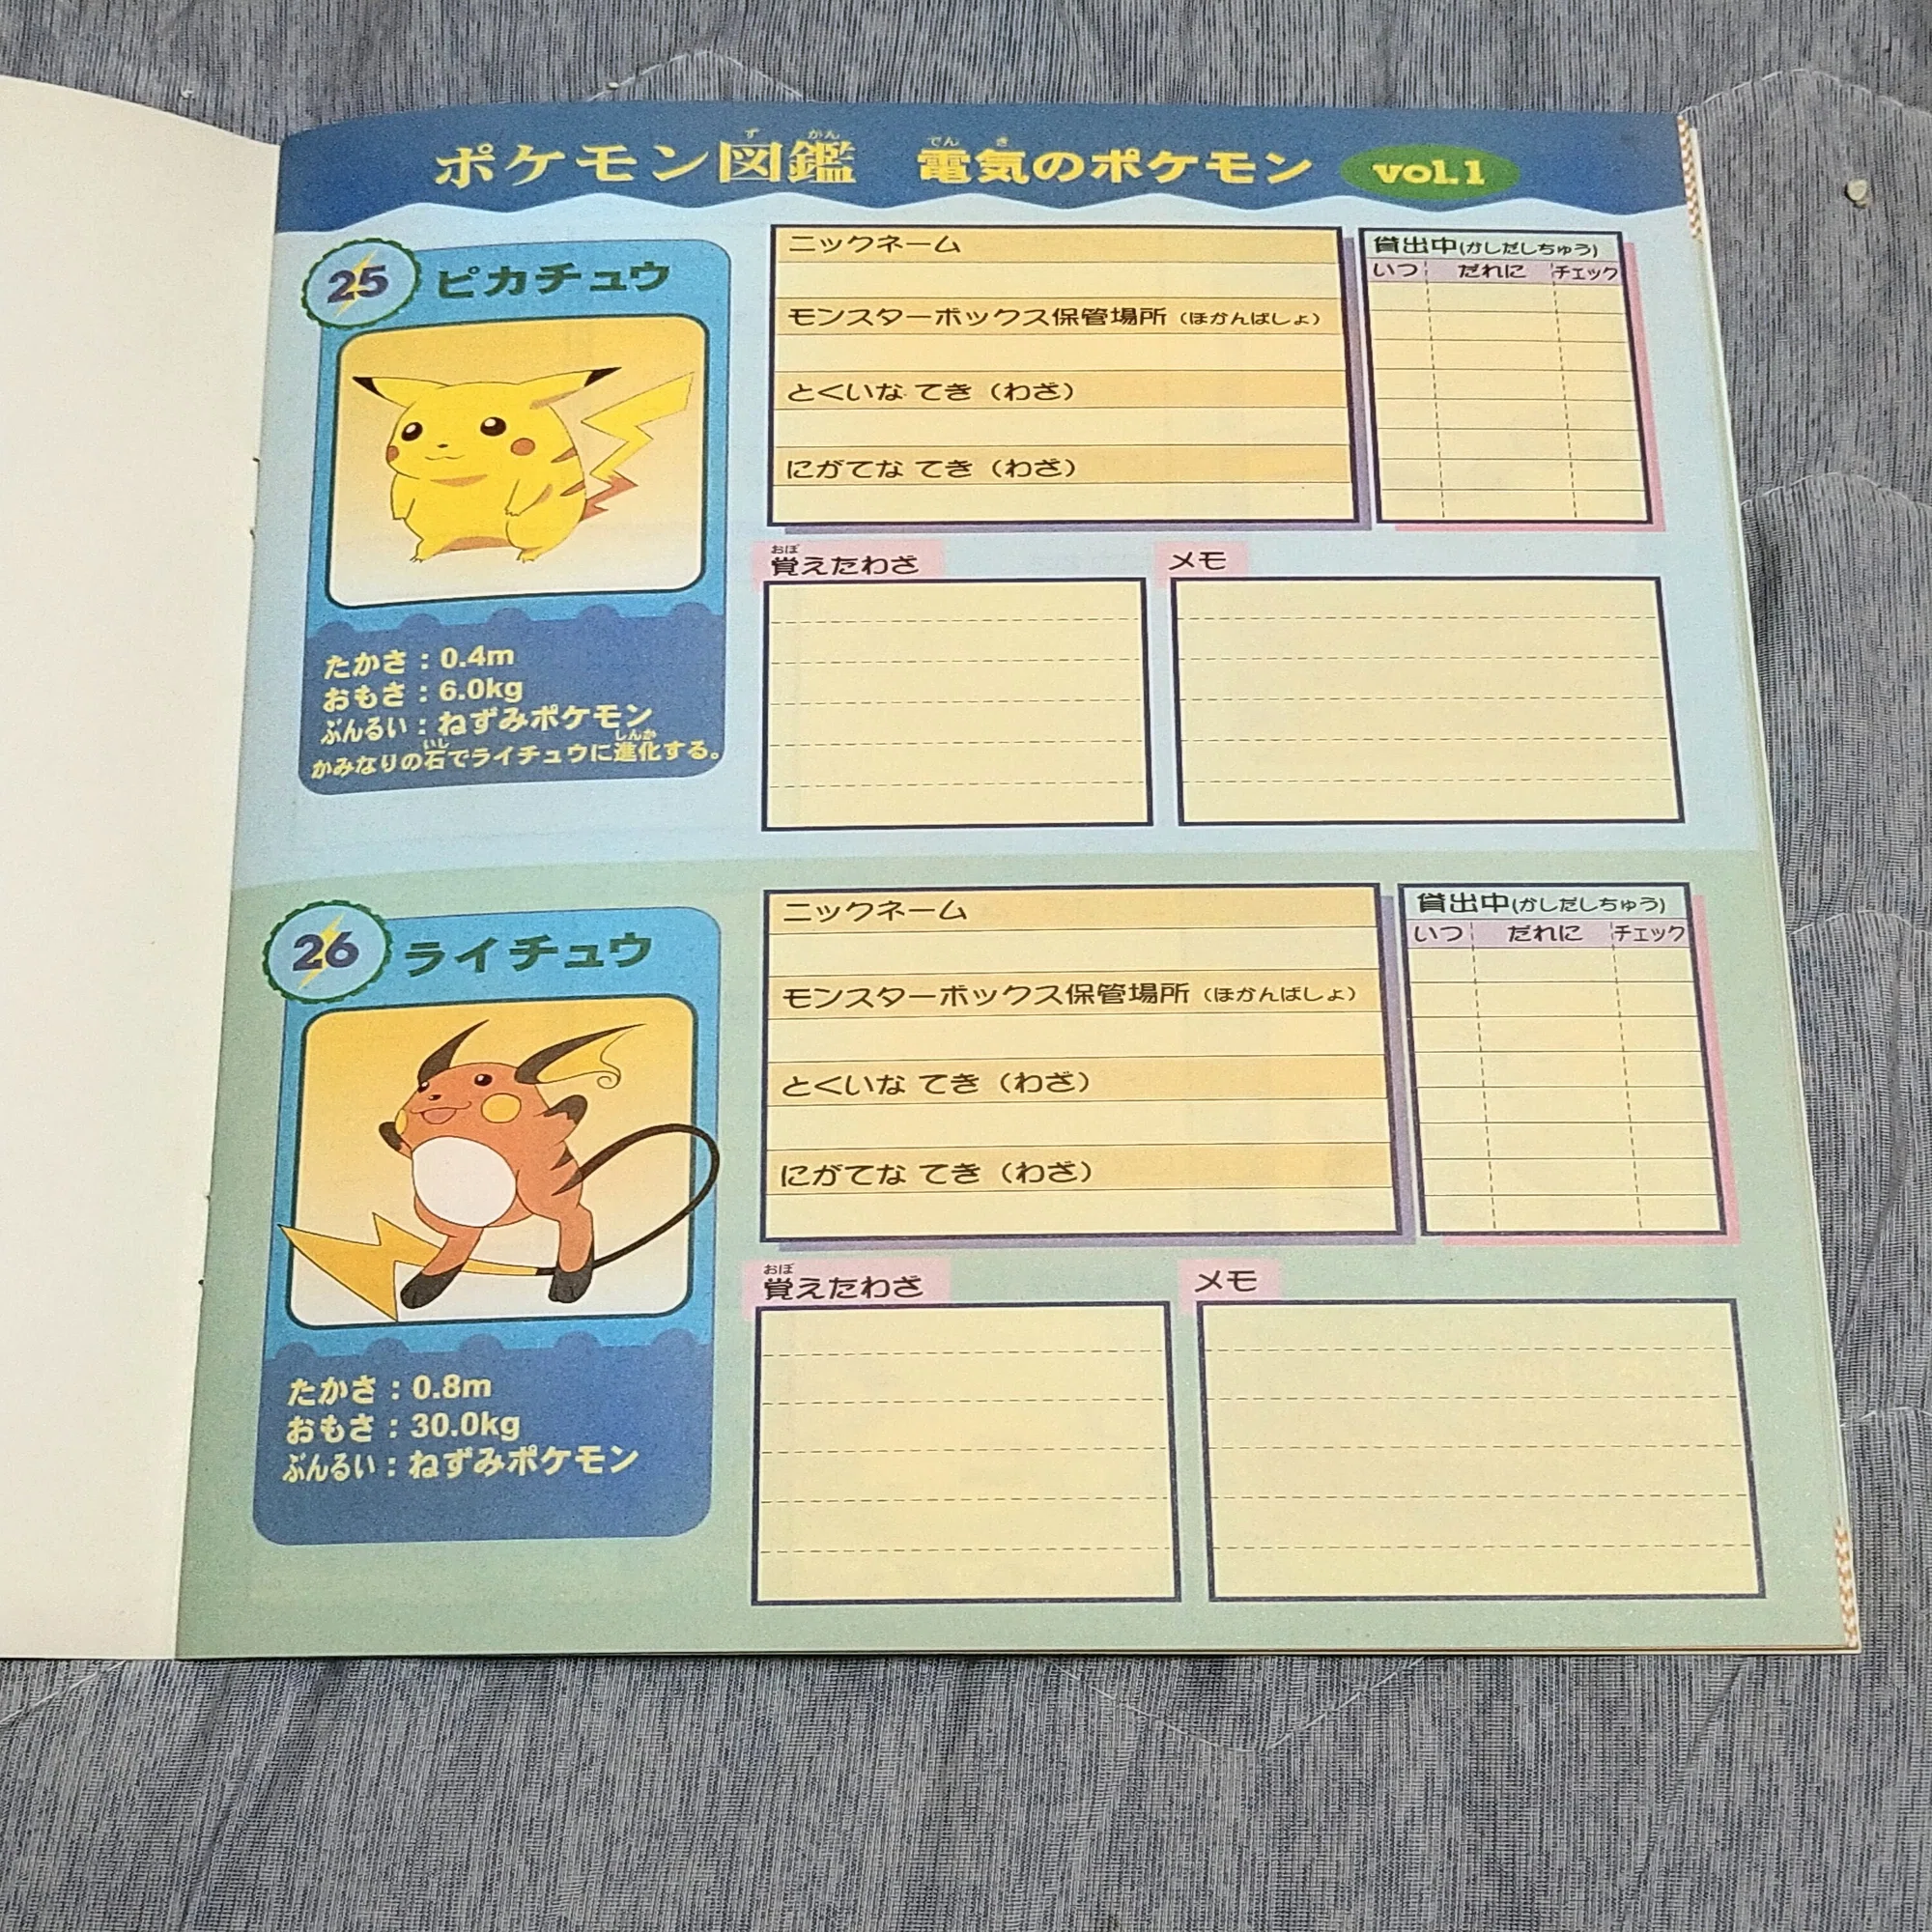 ポケモン図鑑 電気のポケモン vol.1
ず かん でん き
25 ピカチュウ
たかさ：0.4m
おもさ：6.0kg
ぶんるい：ねずみポケモン
いし しんか
かみなりの石でライチュウに進化する。
ニックネーム
モンスターボックス保管場所（ほかんばしょ）
とくいな てき（わざ）
にがてな てき（わざ）
貸出中(かしだしちゅう)
いつ だれに チェック
おぼ
覚えたわざ
メモ
26 ライチュウ
たかさ：0.8m
おもさ：30.0kg
ぶんるい：ねずみポケモン
ニックネーム
モンスターボックス保管場所（ほかんばしょ）
とくいな てき（わざ）
にがてな てき（わざ）
貸出中(かしだしちゅう)
いつ だれに チェック
おぼ
覚えたわざ
メモ